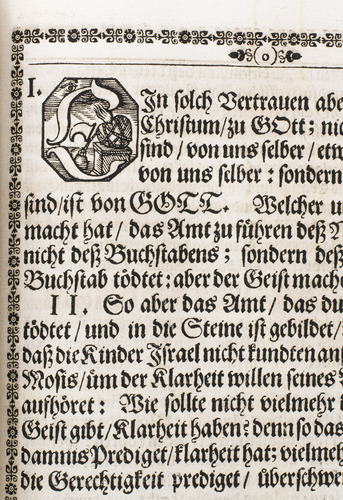 (o)
I. EIn solch Vertrauen abe
Christum/zu GOtt; nic
sind/von uns selber/etw
von uns selber: sondern
sind/ist von GOTT. Welcher u
macht hat/das Amt zu führen deß N
nicht deß Buchstabens; sondern deß
Buchstab tödtet: aber der Geist mache
II. So aber das Amt/das du
tödtet/und in die Steine ist gebildet/
daß die Kinder Israel nicht kundten ans
Mosis/üm der Klarheit willen seines
aufhöret: Wie sollte nicht vielmehr
Geist gibt/Klarheit haben? denn so das
damnis Prediget/klarheit hat; vielmeh
die Gerechtigkeit prediget/überschwe